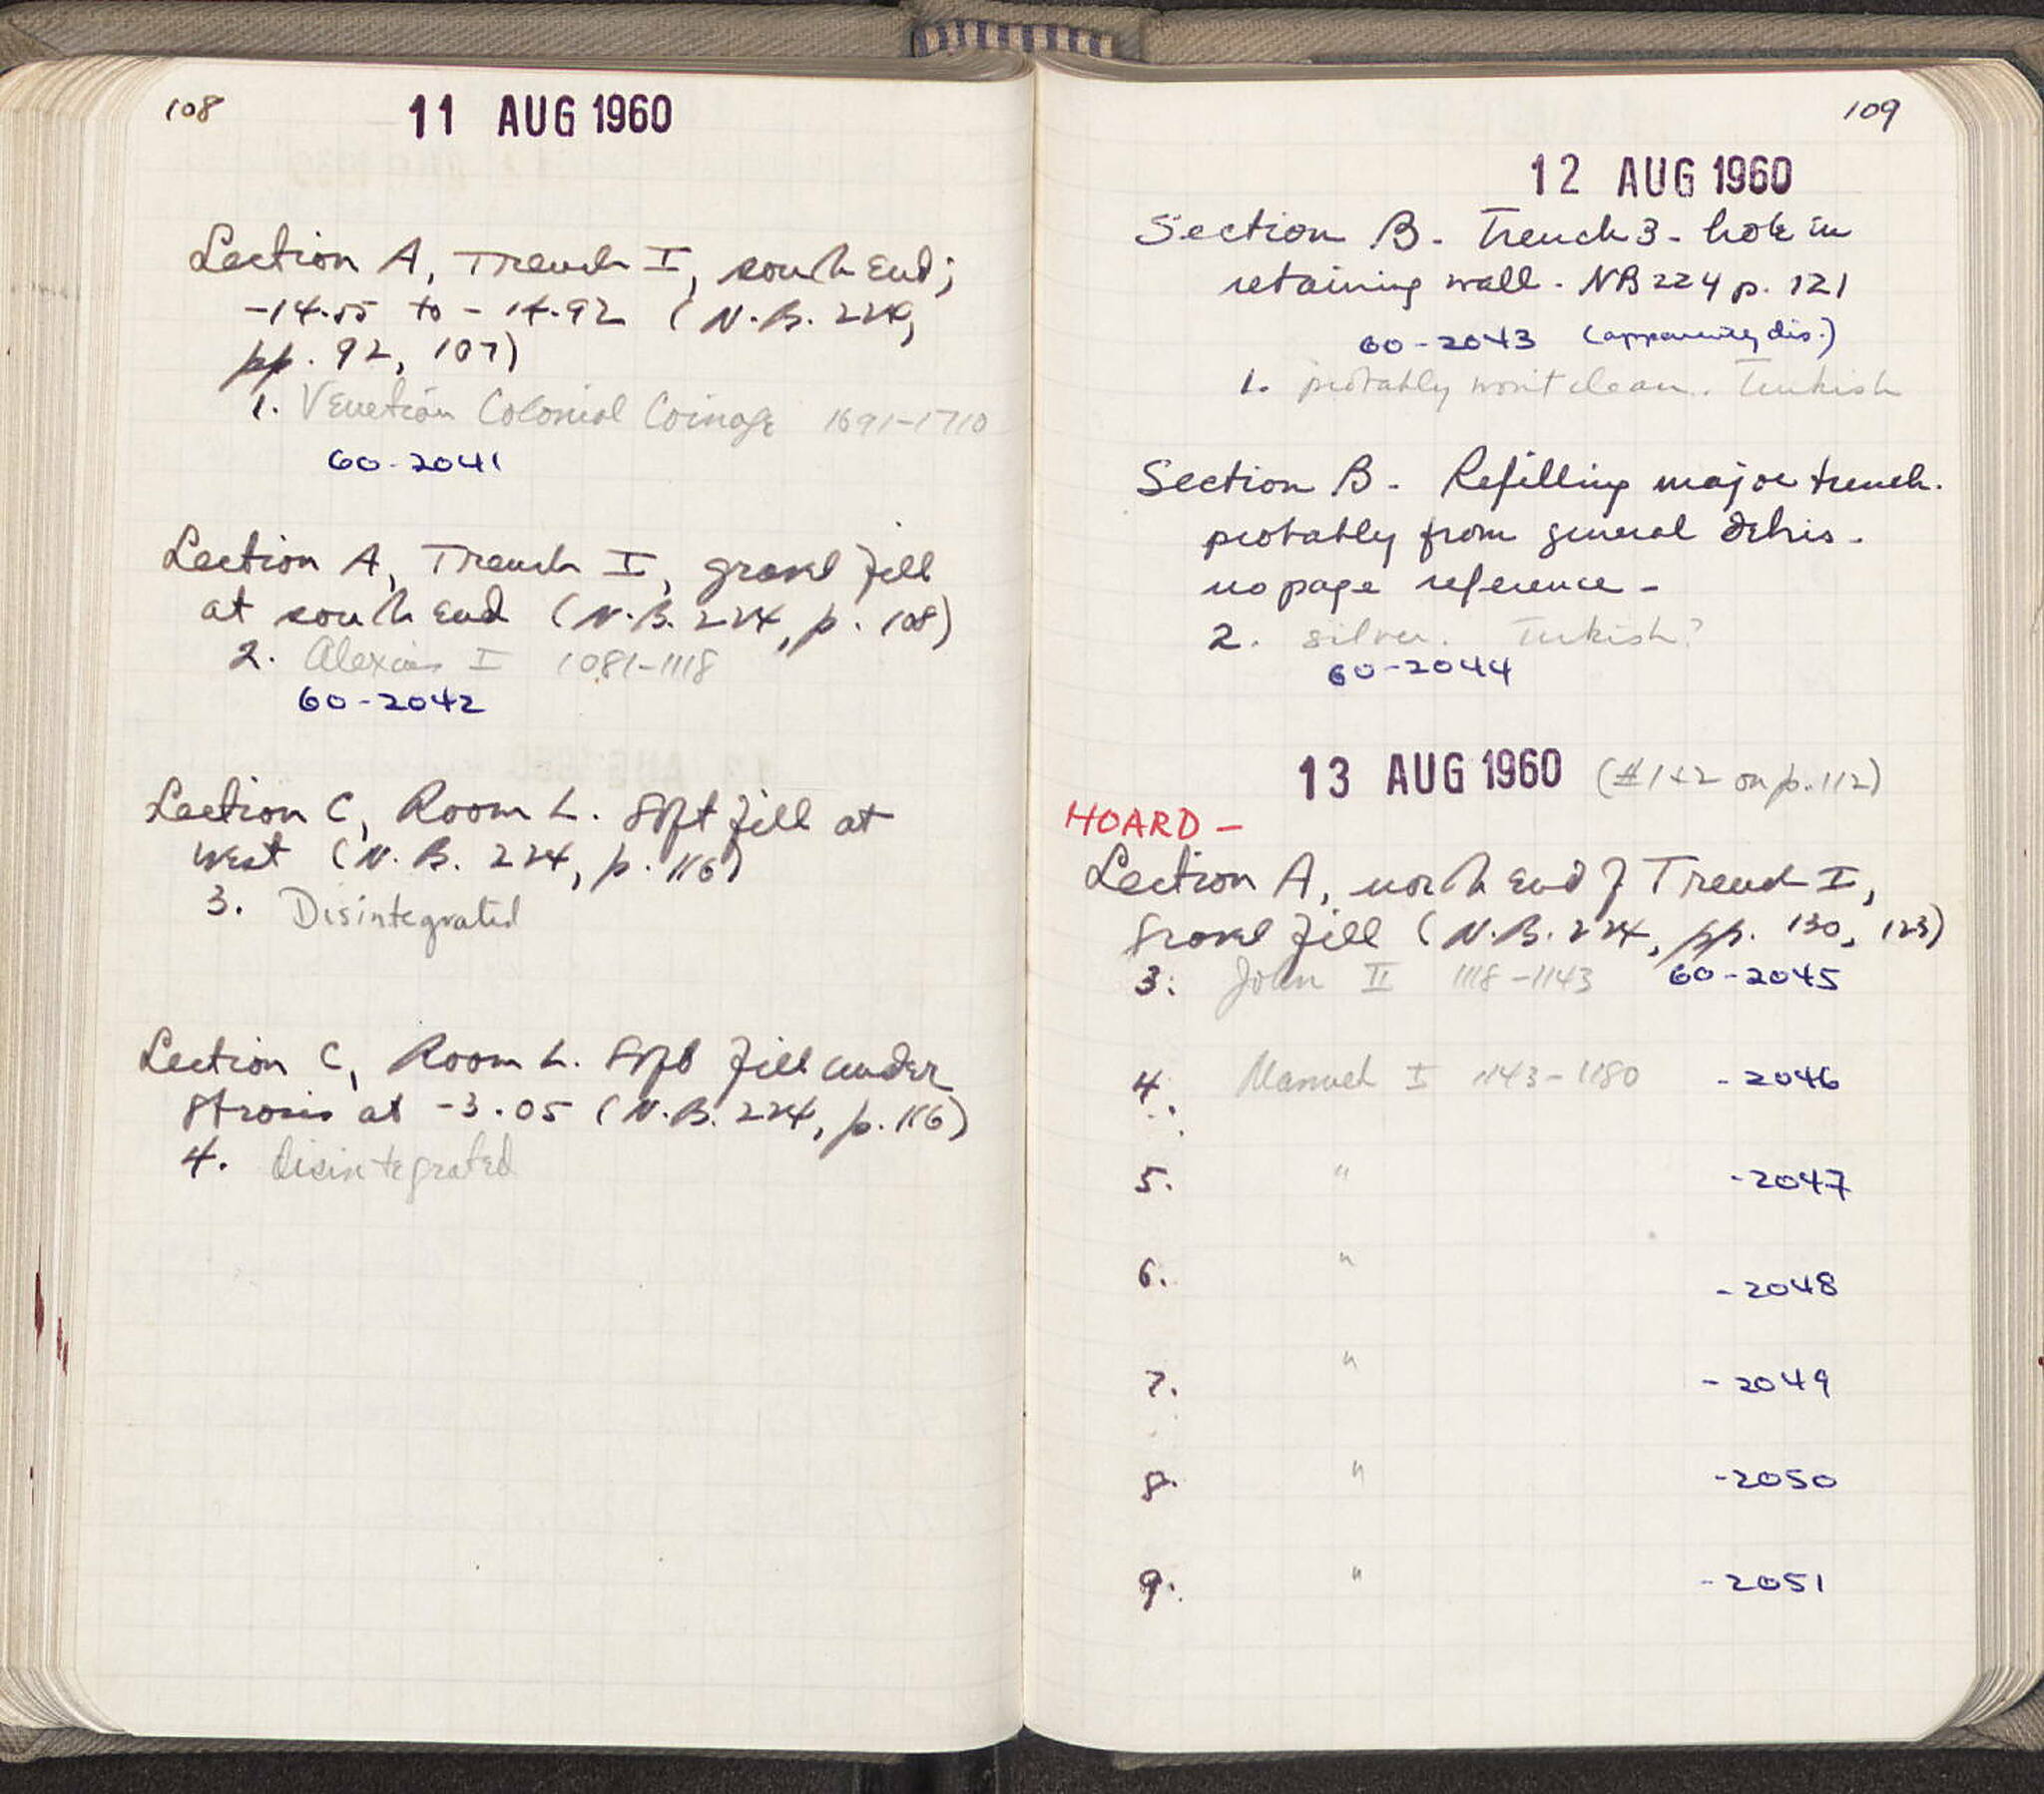 108
11 AUG 1960
Section A, Trench I, south end;
-14.55 to -14.92 (N.B. 224,
pp. 92, 107)
1. Venetian Colonial Coinage 1691-1710
60-2041
Section A, Trench I, gravel fill
at south end (N.B. 224, p. 108)
2. Alexius I 1081-1118
60-2042
Section C, Room L. Soft fill at
west (N.B. 224, p. 116)
3. Disintegrated
Section C, Room L. Soft fill under
strosis at -3.05 (N.B. 224, p. 116)
4. disintegrated
109
12 AUG 1960
Section B - Trench 3 - hole in
retaining wall. NB 224 p. 121
60-2043 (apparently dis.)
1. probably won't clean. Turkish
Section B - Refilling major trench.
probably from general debris -
no page reference -
2. silver. Turkish?
60-2044
13 AUG 1960 (#1+2 on p. 112)
HOARD -
Section A, north end of Trench I,
gravel fill (N.B. 224, pp. 130, 123)
3. John II 1118-1143 60-2045
4. Manuel I 1143-1180 -2046
5. " -2047
6. " -2048
7. " -2049
8. " -2050
9. " -2051